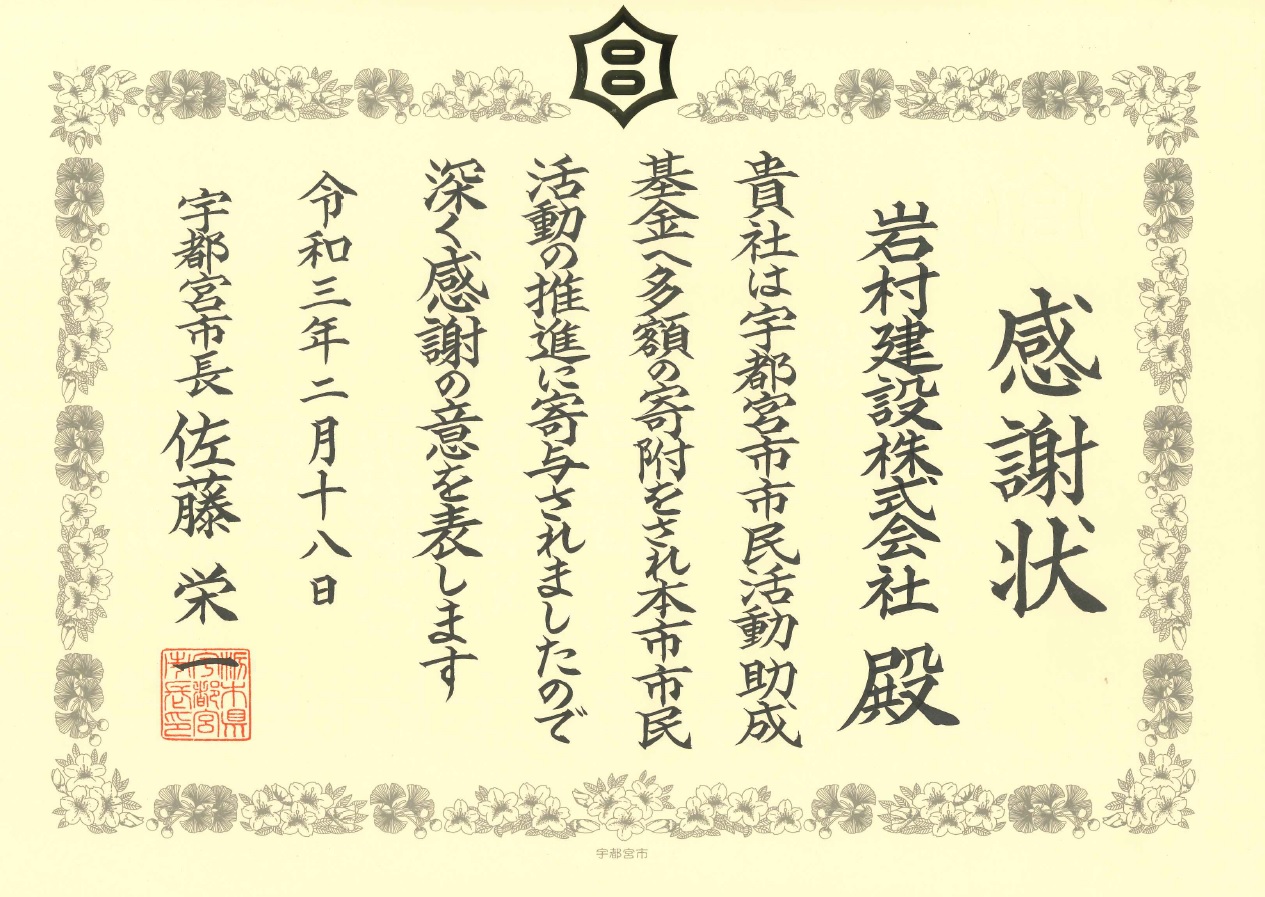 感謝状
岩村建設株式会社 殿
貴社は宇都宮市市民活動助成
基金へ多額の寄附をされ本市市民
活動の推進に寄与されましたので
深く感謝の意を表します
令和三年二月十八日
宇都宮市長 佐藤 栄一
栃木県
宇都宮
市長印
宇都宮市